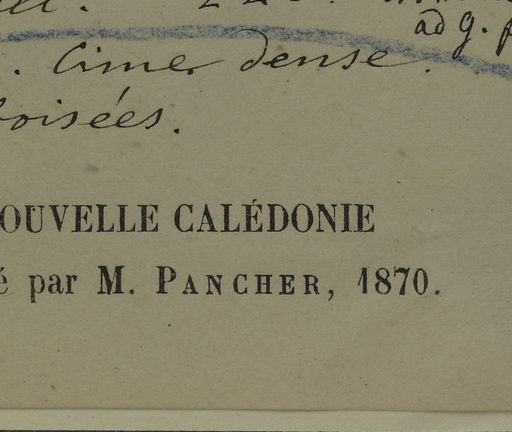 ad g.
. Cime dense.
boisées.
OUVELLE CALÉDONIE
é par M. PANCHER, 1870.